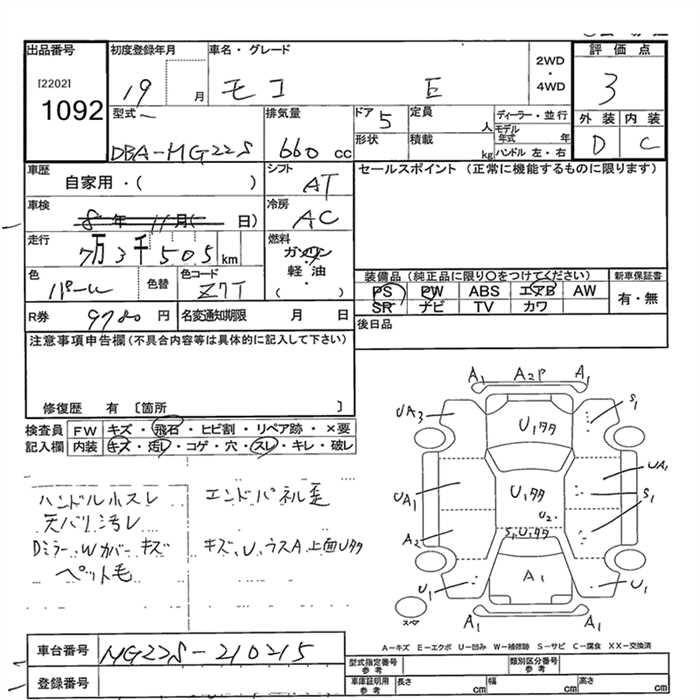 出品番号
[2202]
1092
初度登録年月
19 月
車名・グレード
モコ E
2WD
・
4WD
評価点
3
外装 内装
D C
型式
DBA-MG22S
排気量
660 cc
ドア
5
形状
定員
人
積載
kg
ディーラー・並行
モデル年式 年
ハンドル 左・右
車歴
自家用・( )
シフト
AT
セールスポイント (正常に機能するものに限ります)
車検
8 年 11 月( 日)
冷房
AC
走行
7万3千505 km
燃料
ガソリン
軽油
( )
色
パール
色替
色コード
Z7T
装備品 (純正品に限り○をつけてください)
PS PW ABS エアB AW
SR ナビ TV カワ
新車保証書
有・無
R券
9780 円
名変通知期限 月 日
後日品
注意事項申告欄(不具合内容等は具体的に記入して下さい)
修復歴 有 〔箇所 〕
検査員
記入欄
FW キズ・飛石・ヒビ割・リペア跡・×要
内装 キズ・汚レ・コゲ・穴・スレ・キレ・破レ
ハンドルホスレ
天バリ汚レ
Dミラー.Wカバーキズ
ペット毛
エンドパネル歪
キズ、U、ウスA上面Uタタ
A1 A2P A1
UA3 S1
U1タタ
UA1
UA1 U1タタ S1
U2
A2 S1U1タタ
U1 A1 U1
スペア
A1 A1
A-キズ E-エクボ U-凹み W-補修跡 S-サビ C-腐食 XX-交換済
車台番号
MG22S-210215
登録番号
型式指定番号
参考
類別区分番号
参考
車庫証明用
参考
長さ cm
幅 cm
高さ cm